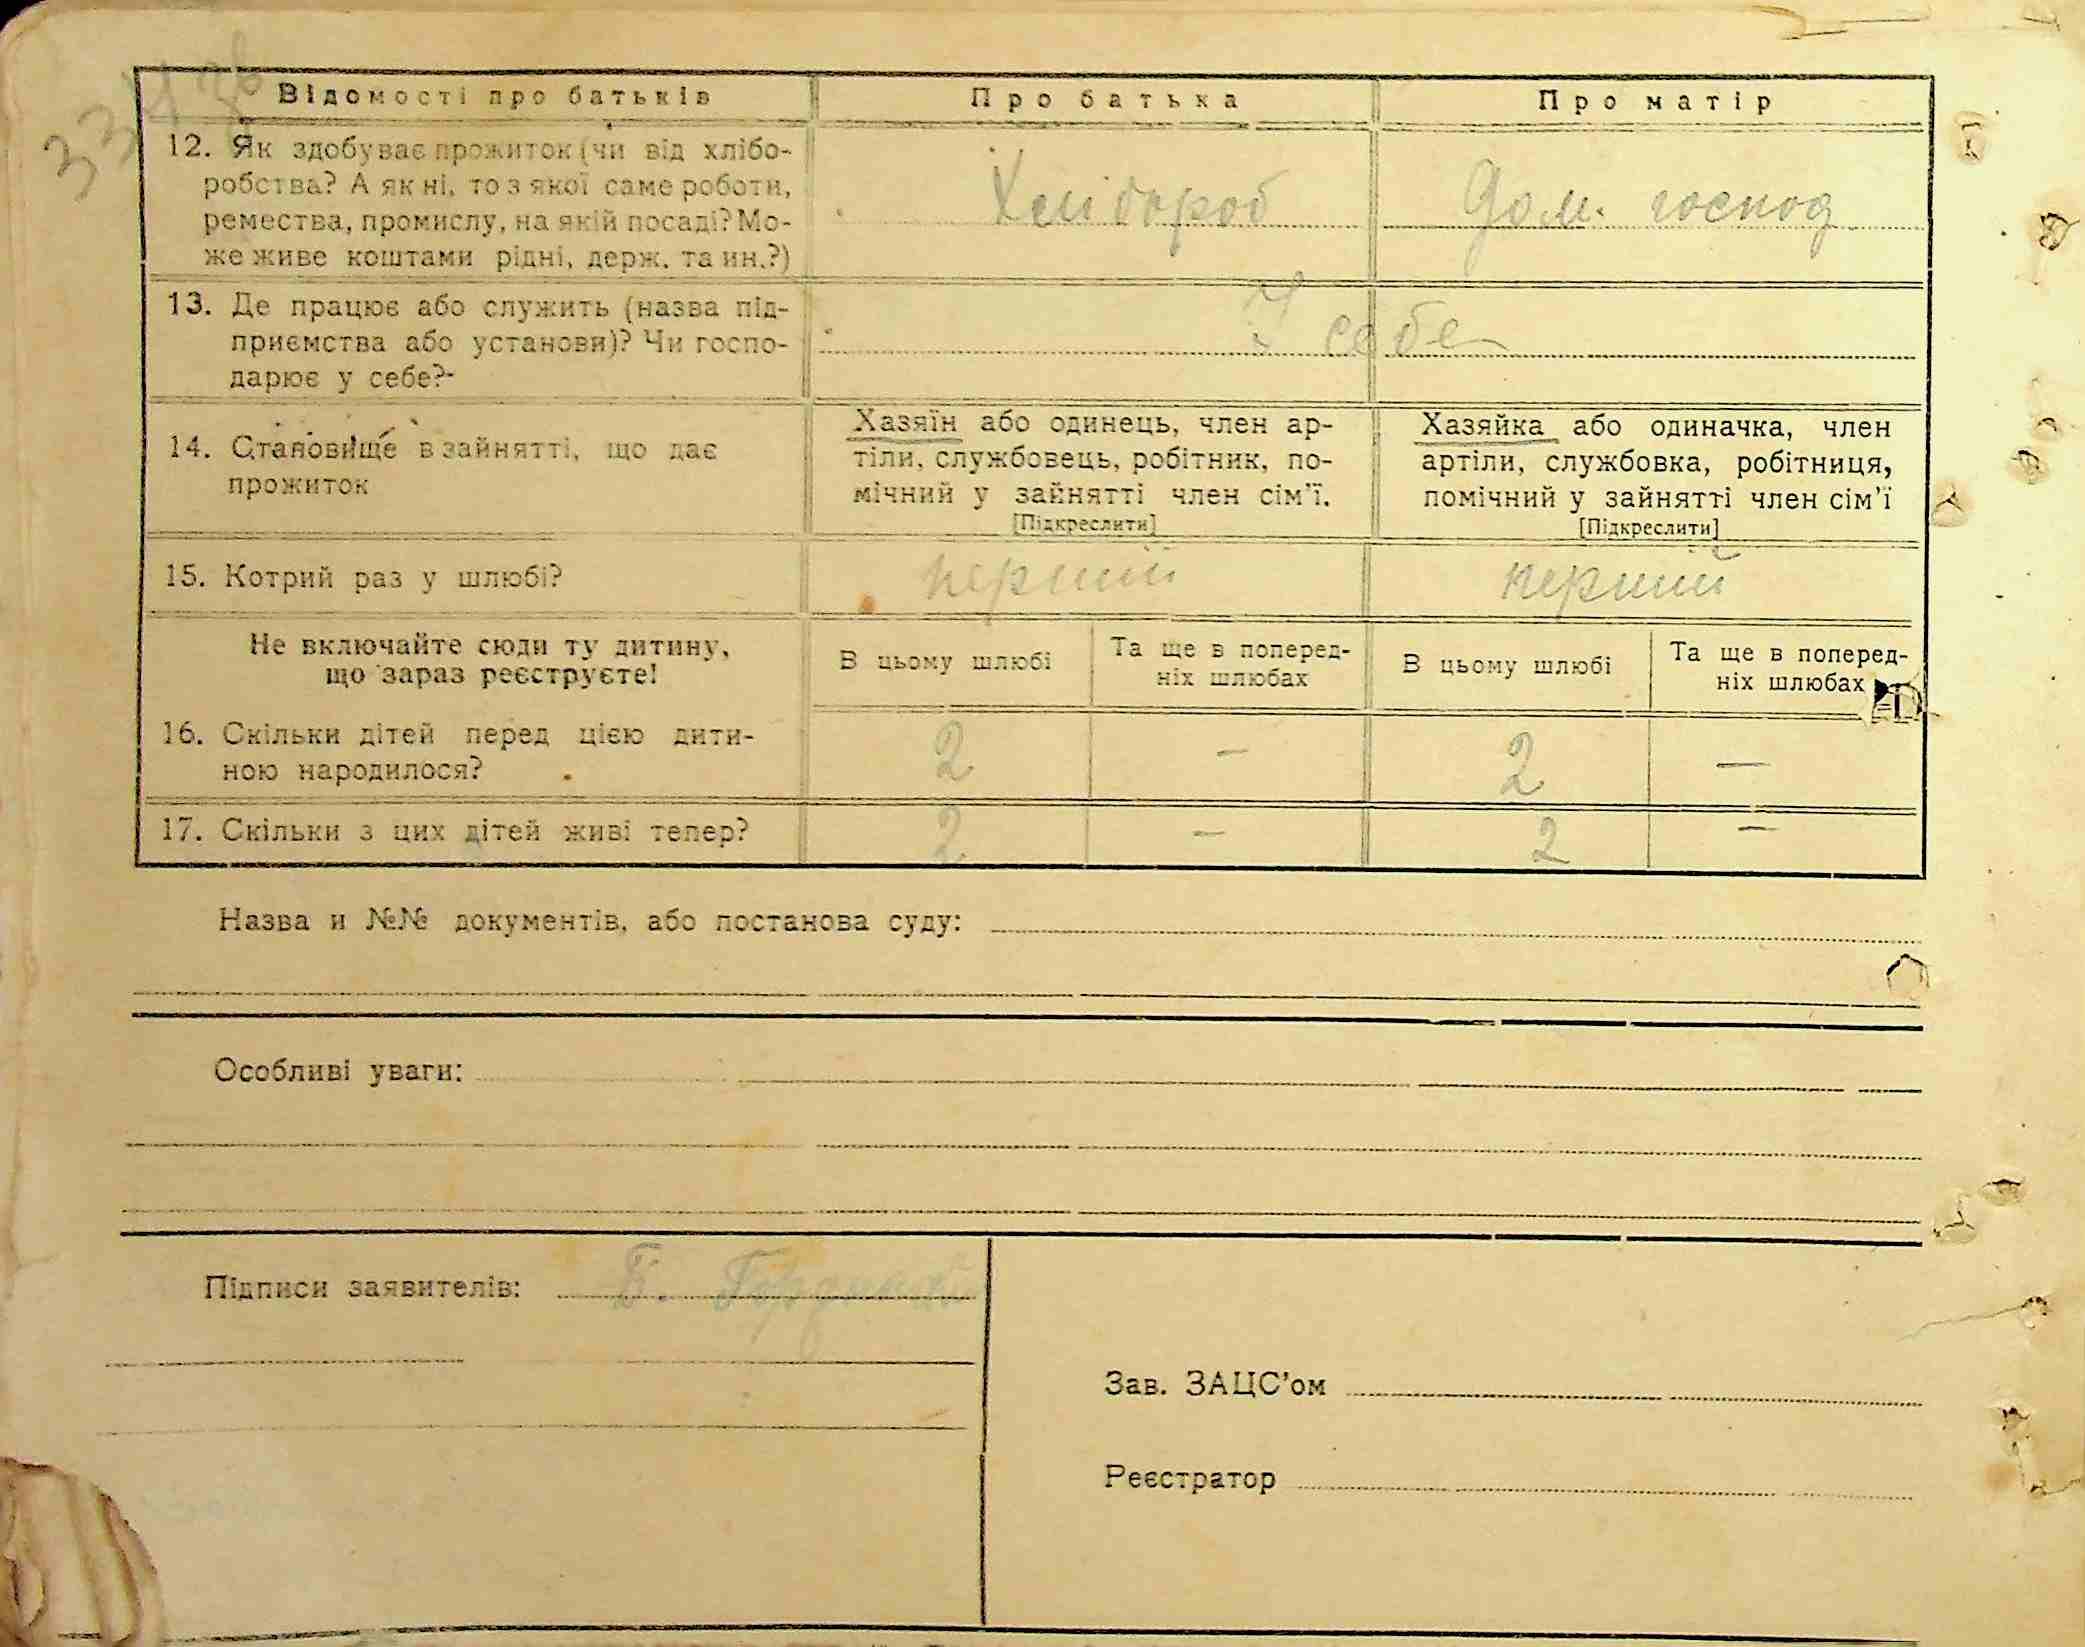 Відомості про батьків Про батька Про матір
12. Як здобуває прожиток (чи від хлібо-
робства? А як ні, то з якої саме роботи,
ремества, промислу, на якій посаді? Мо-
же живе коштами рідні, держ. та ин.?)
Хлібороб Дом. господ
13. Де працює або служить (назва під-
приємства або установи)? Чи госпо-
дарює у себе?
У себе
14. Становище в зайнятті, що дає
прожиток
Хазяїн або одинець, член ар-
тіли, службовець, робітник, по-
мічний у зайнятті член сім'ї.
[Підкреслити]
Хазяйка або одиначка, член
артіли, службовка, робітниця,
помічний у зайнятті член сім'ї
[Підкреслити]
15. Котрий раз у шлюбі? перший перший
Не включайте сюди ту дитину,
що зараз реєструєте!
В цьому шлюбі
Та ще в поперед-
ніх шлюбах
В цьому шлюбі
Та ще в поперед-
ніх шлюбах
16. Скільки дітей перед цією дити-
ною народилося?
2 — 2 —
17. Скільки з цих дітей живі тепер? 2 — 2 —
Назва и №№ документів, або постанова суду:
Особливі уваги:
Підписи заявителів:
Зав. ЗАЦС'ом
Реєстратор